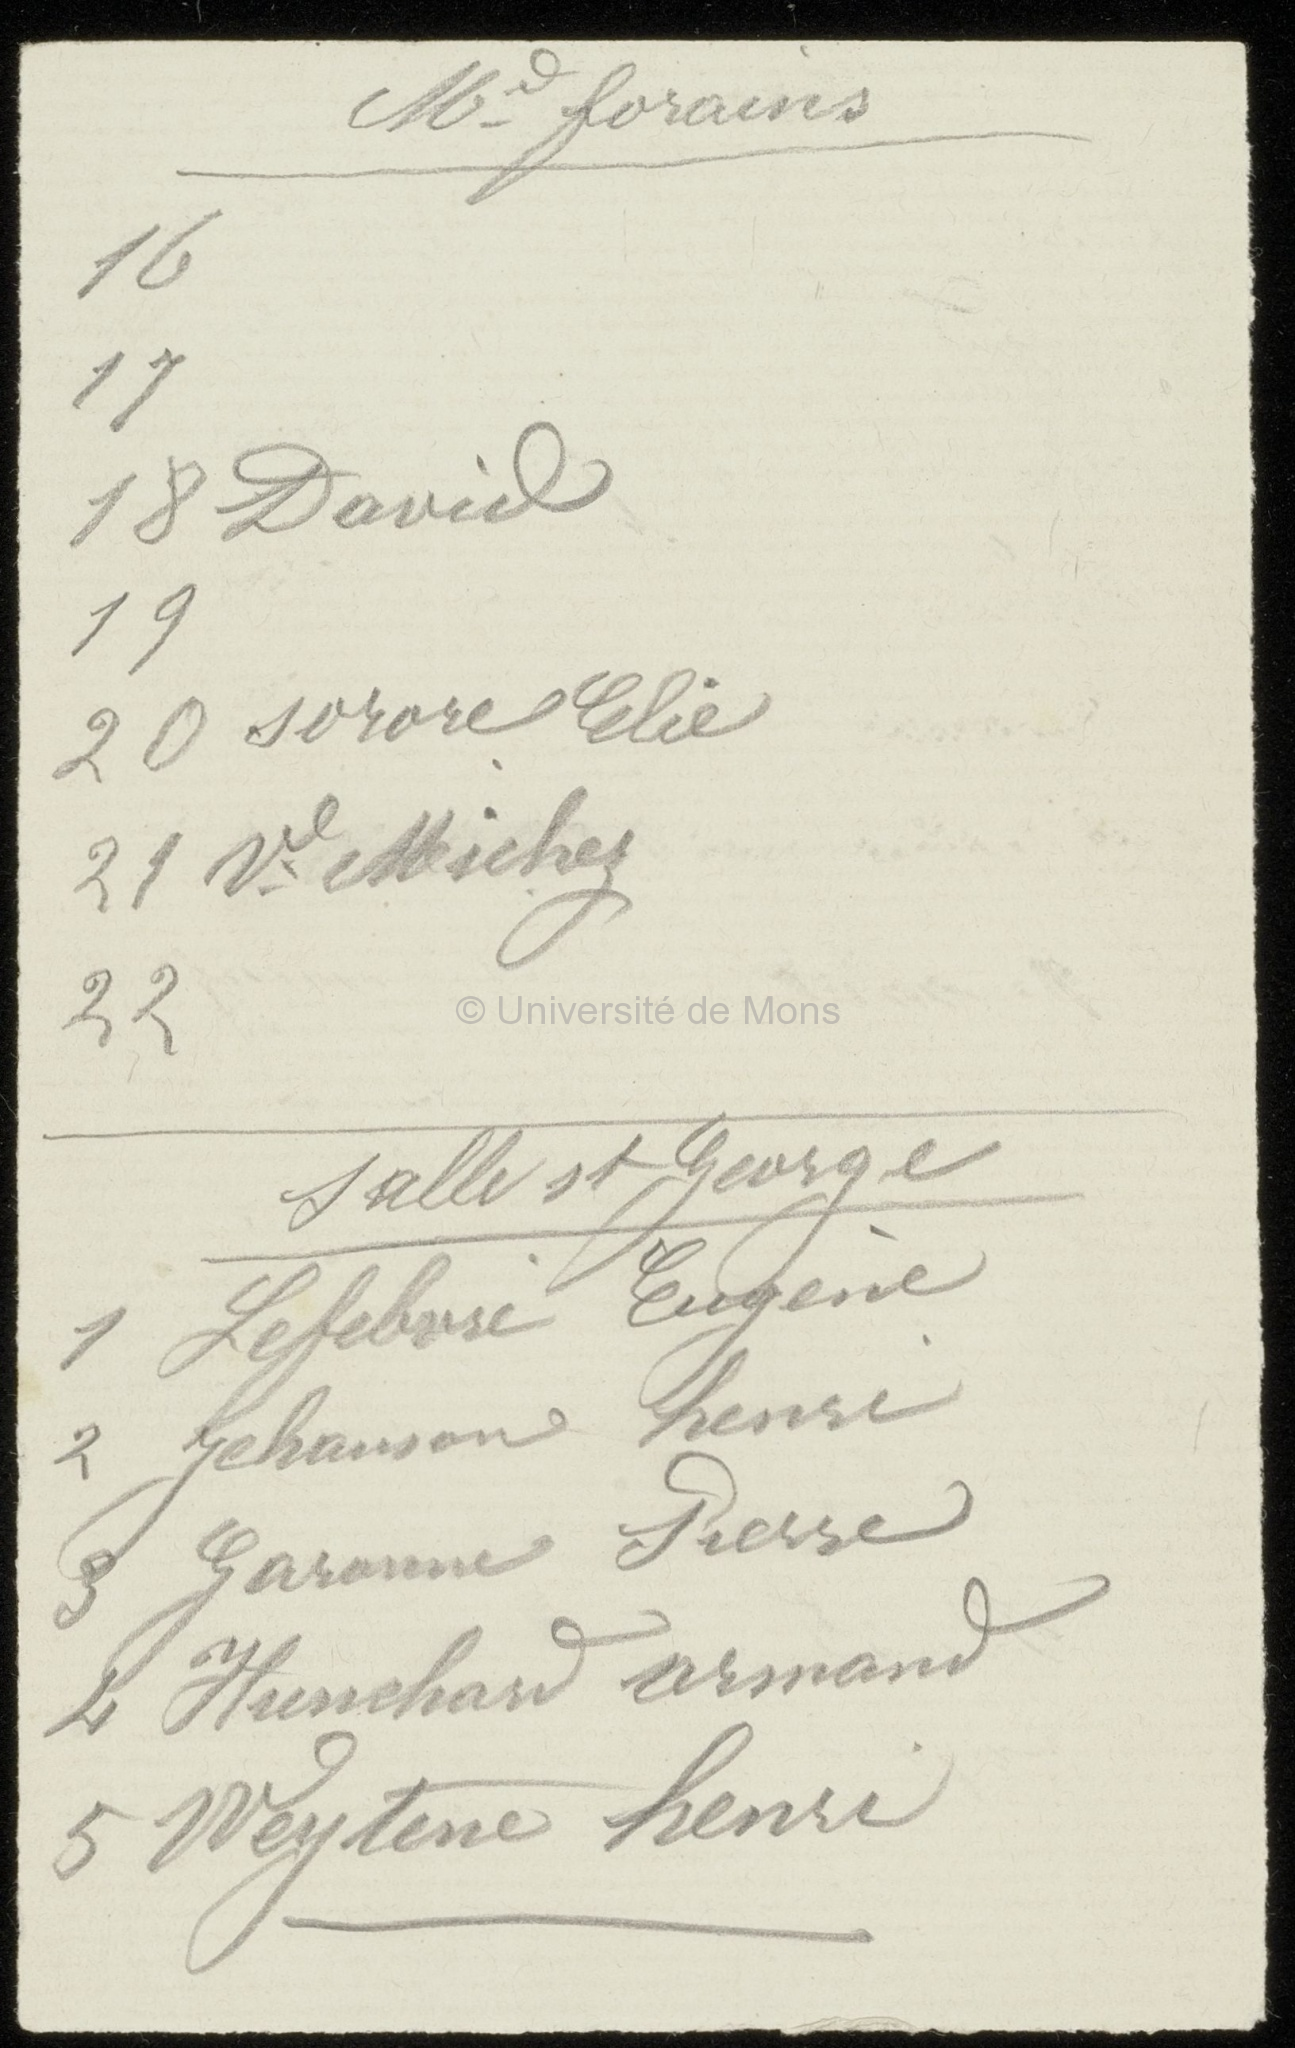 Md forains
16
17
18 David
19
20 sorore Elie
21 Ve Michez
22
© Université de Mons
salle st George
1 Lefebvre Eugène
2 Jehanson henri
3 Garonne Pierre
4 Hunchard armand
5 Weytene henri